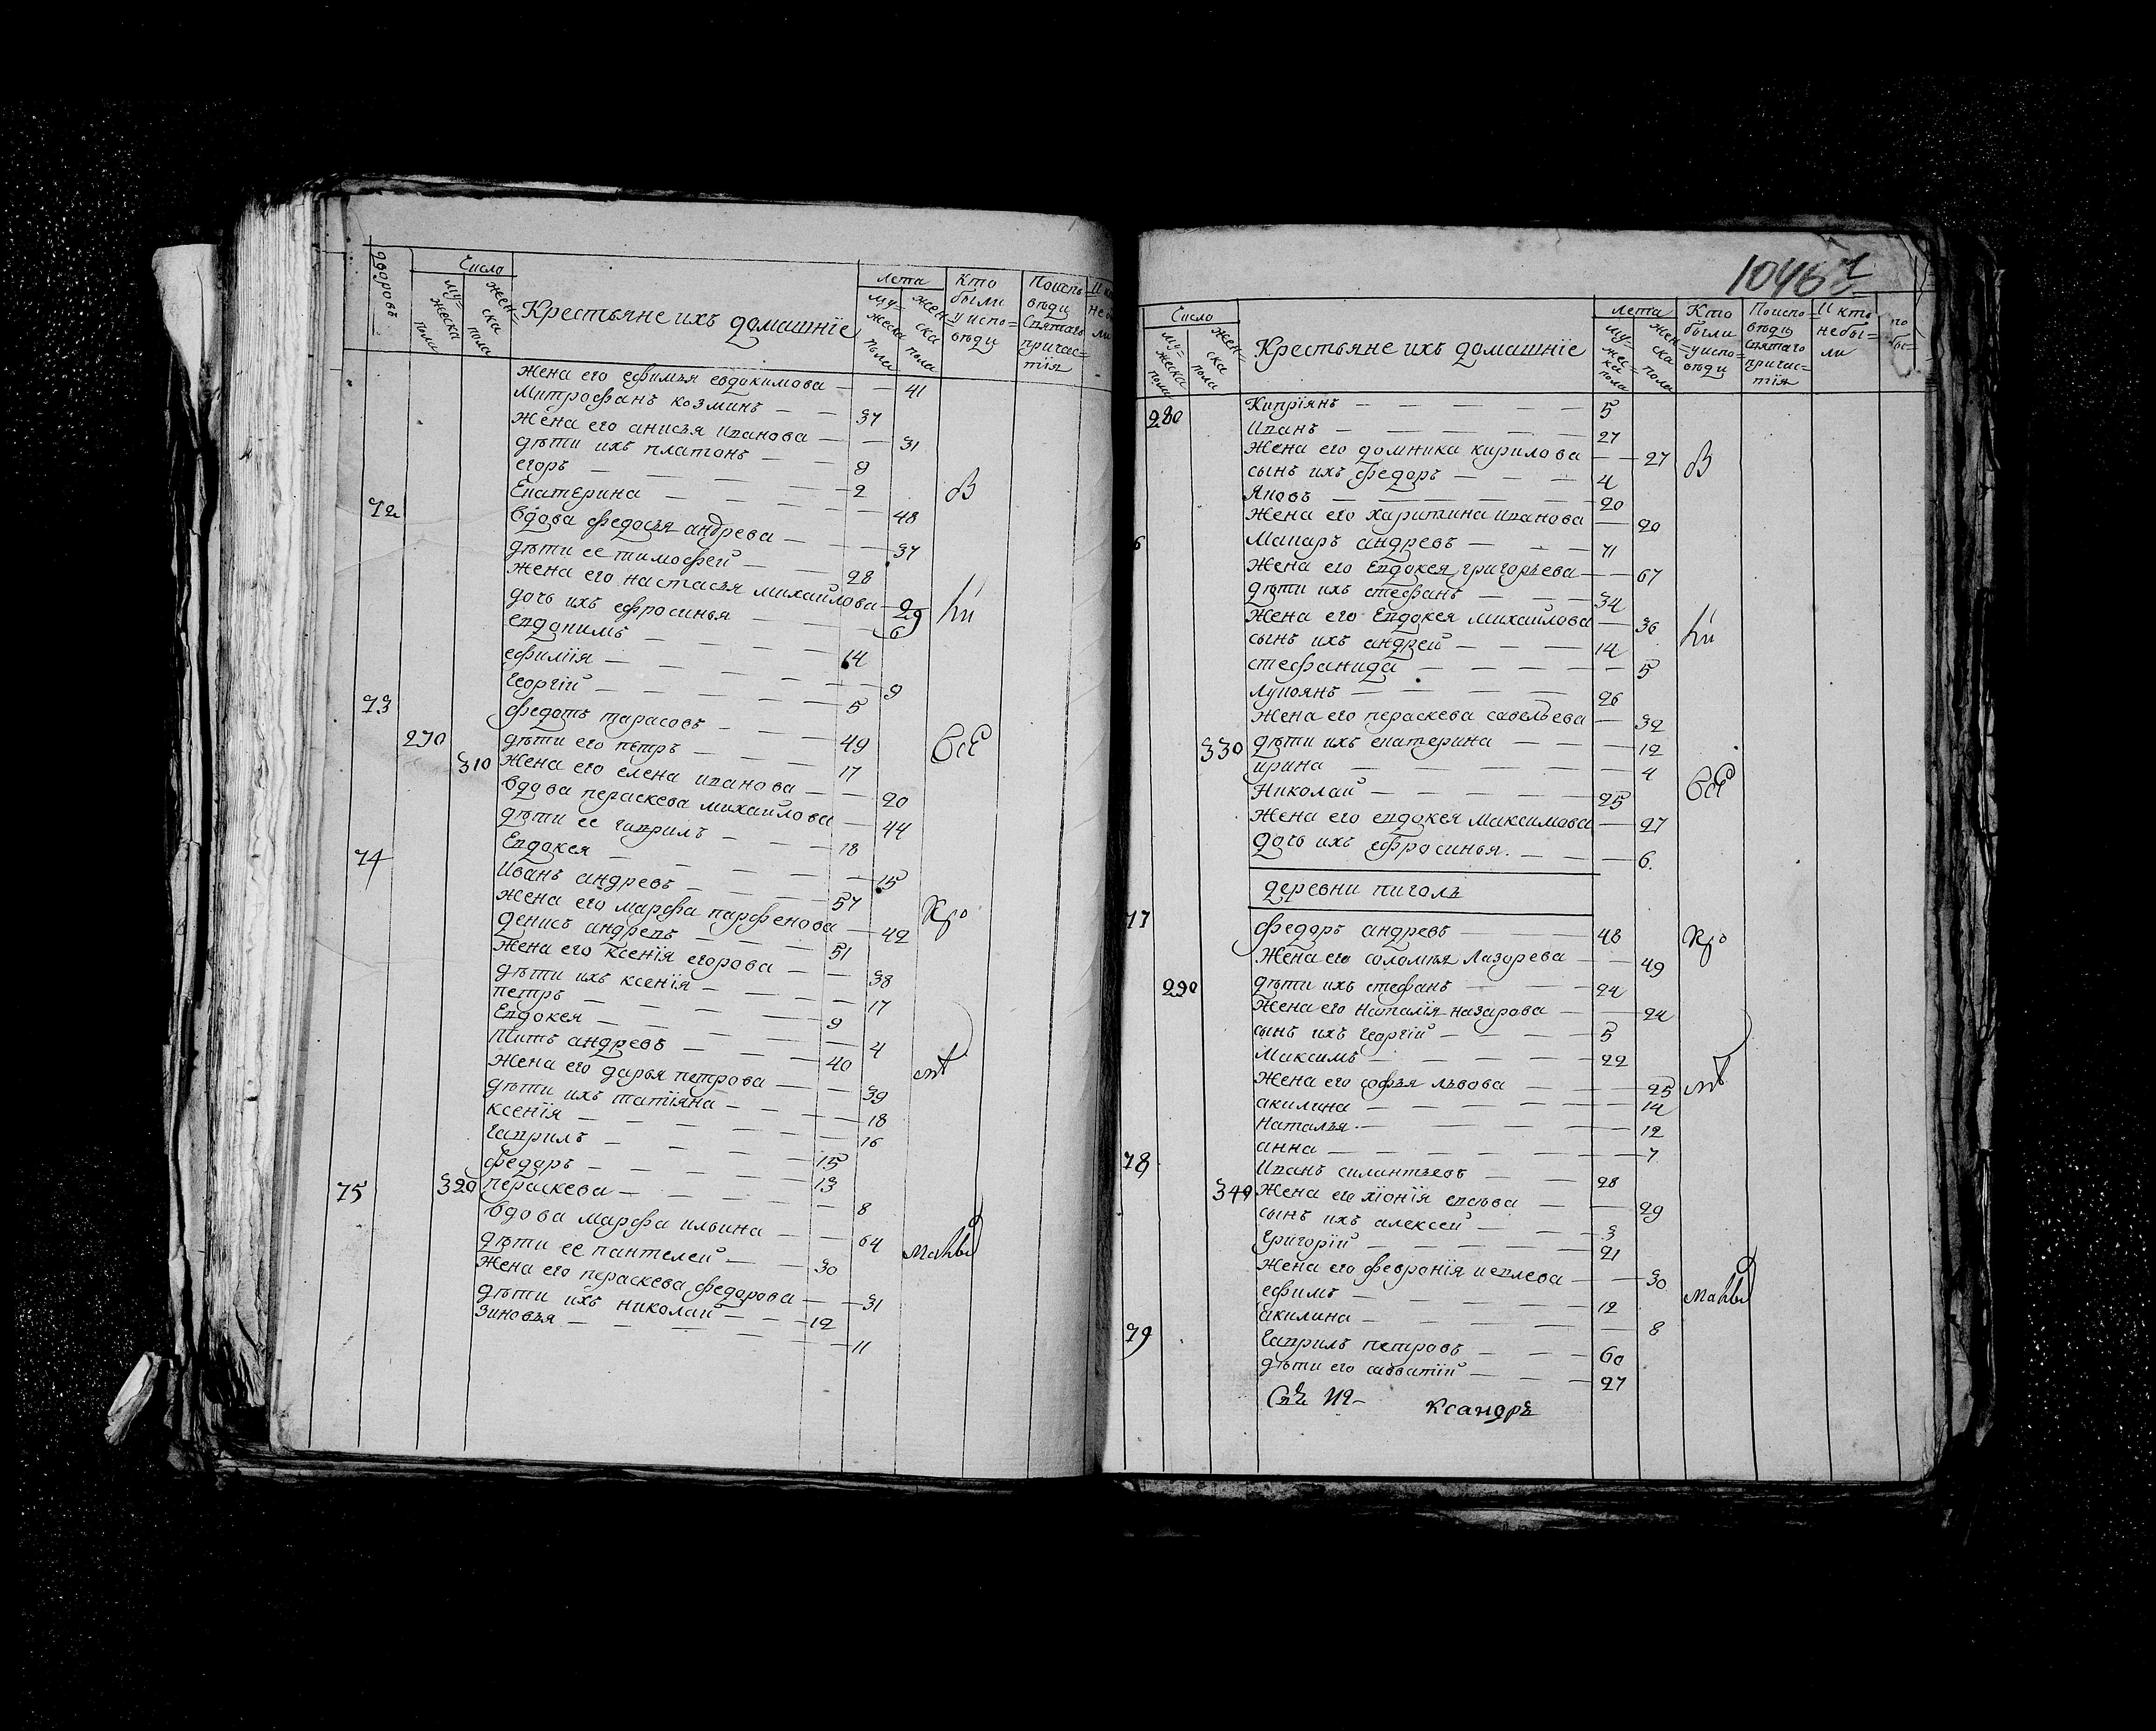 дворовъ
Число
му=
жеска
пола
жен=
ска
пола
Крестьяне ихъ домашнїе
лета
му=
жеска
пола
жен=
ска
пола
Кто
были
у испо=
вѣди
Поиспо
вѣди
святаго
причас=
тїя
жена его ефимья евдокимова — — 41
Митрофанъ козминъ — — 37
жена его анисья иванова — — 31
дѣти ихъ платонъ — — 9
егоръ — — — — 2
Екатерина — — — — 48
72 вдова федосья андрева — — 37
дѣти ее тимофей — — 28
жена его настасья михаилова — 29
дочь ихъ ефросинья — — — 6
евдокимъ — — — — 14
ефимїя — — — — 9
Георгїй — — — — 5
73 федотъ тарасовъ — — 49
270 дѣти его петръ — — — 17
310 жена его елена иванова — — 20
вдова пераскева михаилова — 44
дѣти ее гаврилъ — — — 18
Евдокея — — — — 15
74 Иванъ андревъ — — — 57
жена его марфа парфенова — 42
денисъ андревъ — — — 51
жена его ксенїя егорова — — 38
дѣти ихъ ксенїя — — — 17
петръ — — — — 9
Евдокея — — — — 4
Титъ андревъ — — — 40
жена его дарья петрова — — 39
дѣти ихъ татїяна — — — 18
ксенїя — — — — 16
Гаврилъ — — — — 15
федоръ — — — — 13
320 пераскева — — — — 8
75 вдова марфа ильина — — 64
дѣти ее пантелей — — 30
жена его пераскева федорова — 31
дѣти ихъ николай — — — 12
зиновья — — — — 11
В
Всѣ
10467
Число
му=
жеска
пола
жен=
ска
пола
Крестьяне ихъ домашнїе
лета
му=
жес=
ка
пола
жен=
ска
пола
Кто
были
у испо=
вѣди
Поиспо=
вѣди
святаго
причас=
тїя
И кто
небы=
ли
280 Кипрїянъ — — — — 5
Иванъ — — — — 27
жена его домника кирилова — — 27
сынъ ихъ федоръ — — — 4
Яковъ — — — — 20
жена его харитина иванова — 20
6 Макаръ андревъ — — — 71
жена его Евдокея григорьева — — 67
дѣти ихъ стефанъ — — — 34
жена его Евдокея михаилова — 36
сынъ ихъ андрей — — — 14
стефанида — — — — 5
лукоянъ — — — — 26
жена его пераскева савельева — 32
330 дѣти ихъ екатерина — — — 12
ирина — — — — 4
Николай — — — — 25
жена его евдокея максимова — 27
дочь ихъ ефросинья — — — 6
деревни пиголь
77 федоръ андревъ — — — 48
жена его соломея Лазорева — — 49
290 дѣти ихъ стефанъ — — — 24
жена его наталїя назарова — — 24
сынъ ихъ Георгїй — — — 5
Максимъ — — — — 22
жена его софья львова — — 25
акилина — — — — 14
Наталья — — — — 12
анна — — — — 7
78 Иванъ силантьевъ — — 28
340 жена его хїонїя — — 29
сынъ ихъ алексей — — 3
Григорїй — — — — 21
жена его февронїя — — 30
ефимъ — — — — 12
акилина — — — — 8
79 Гаврилъ петровъ — — — 60
дѣти его савватїй — — — 27
В
Всѣ
ксандръ